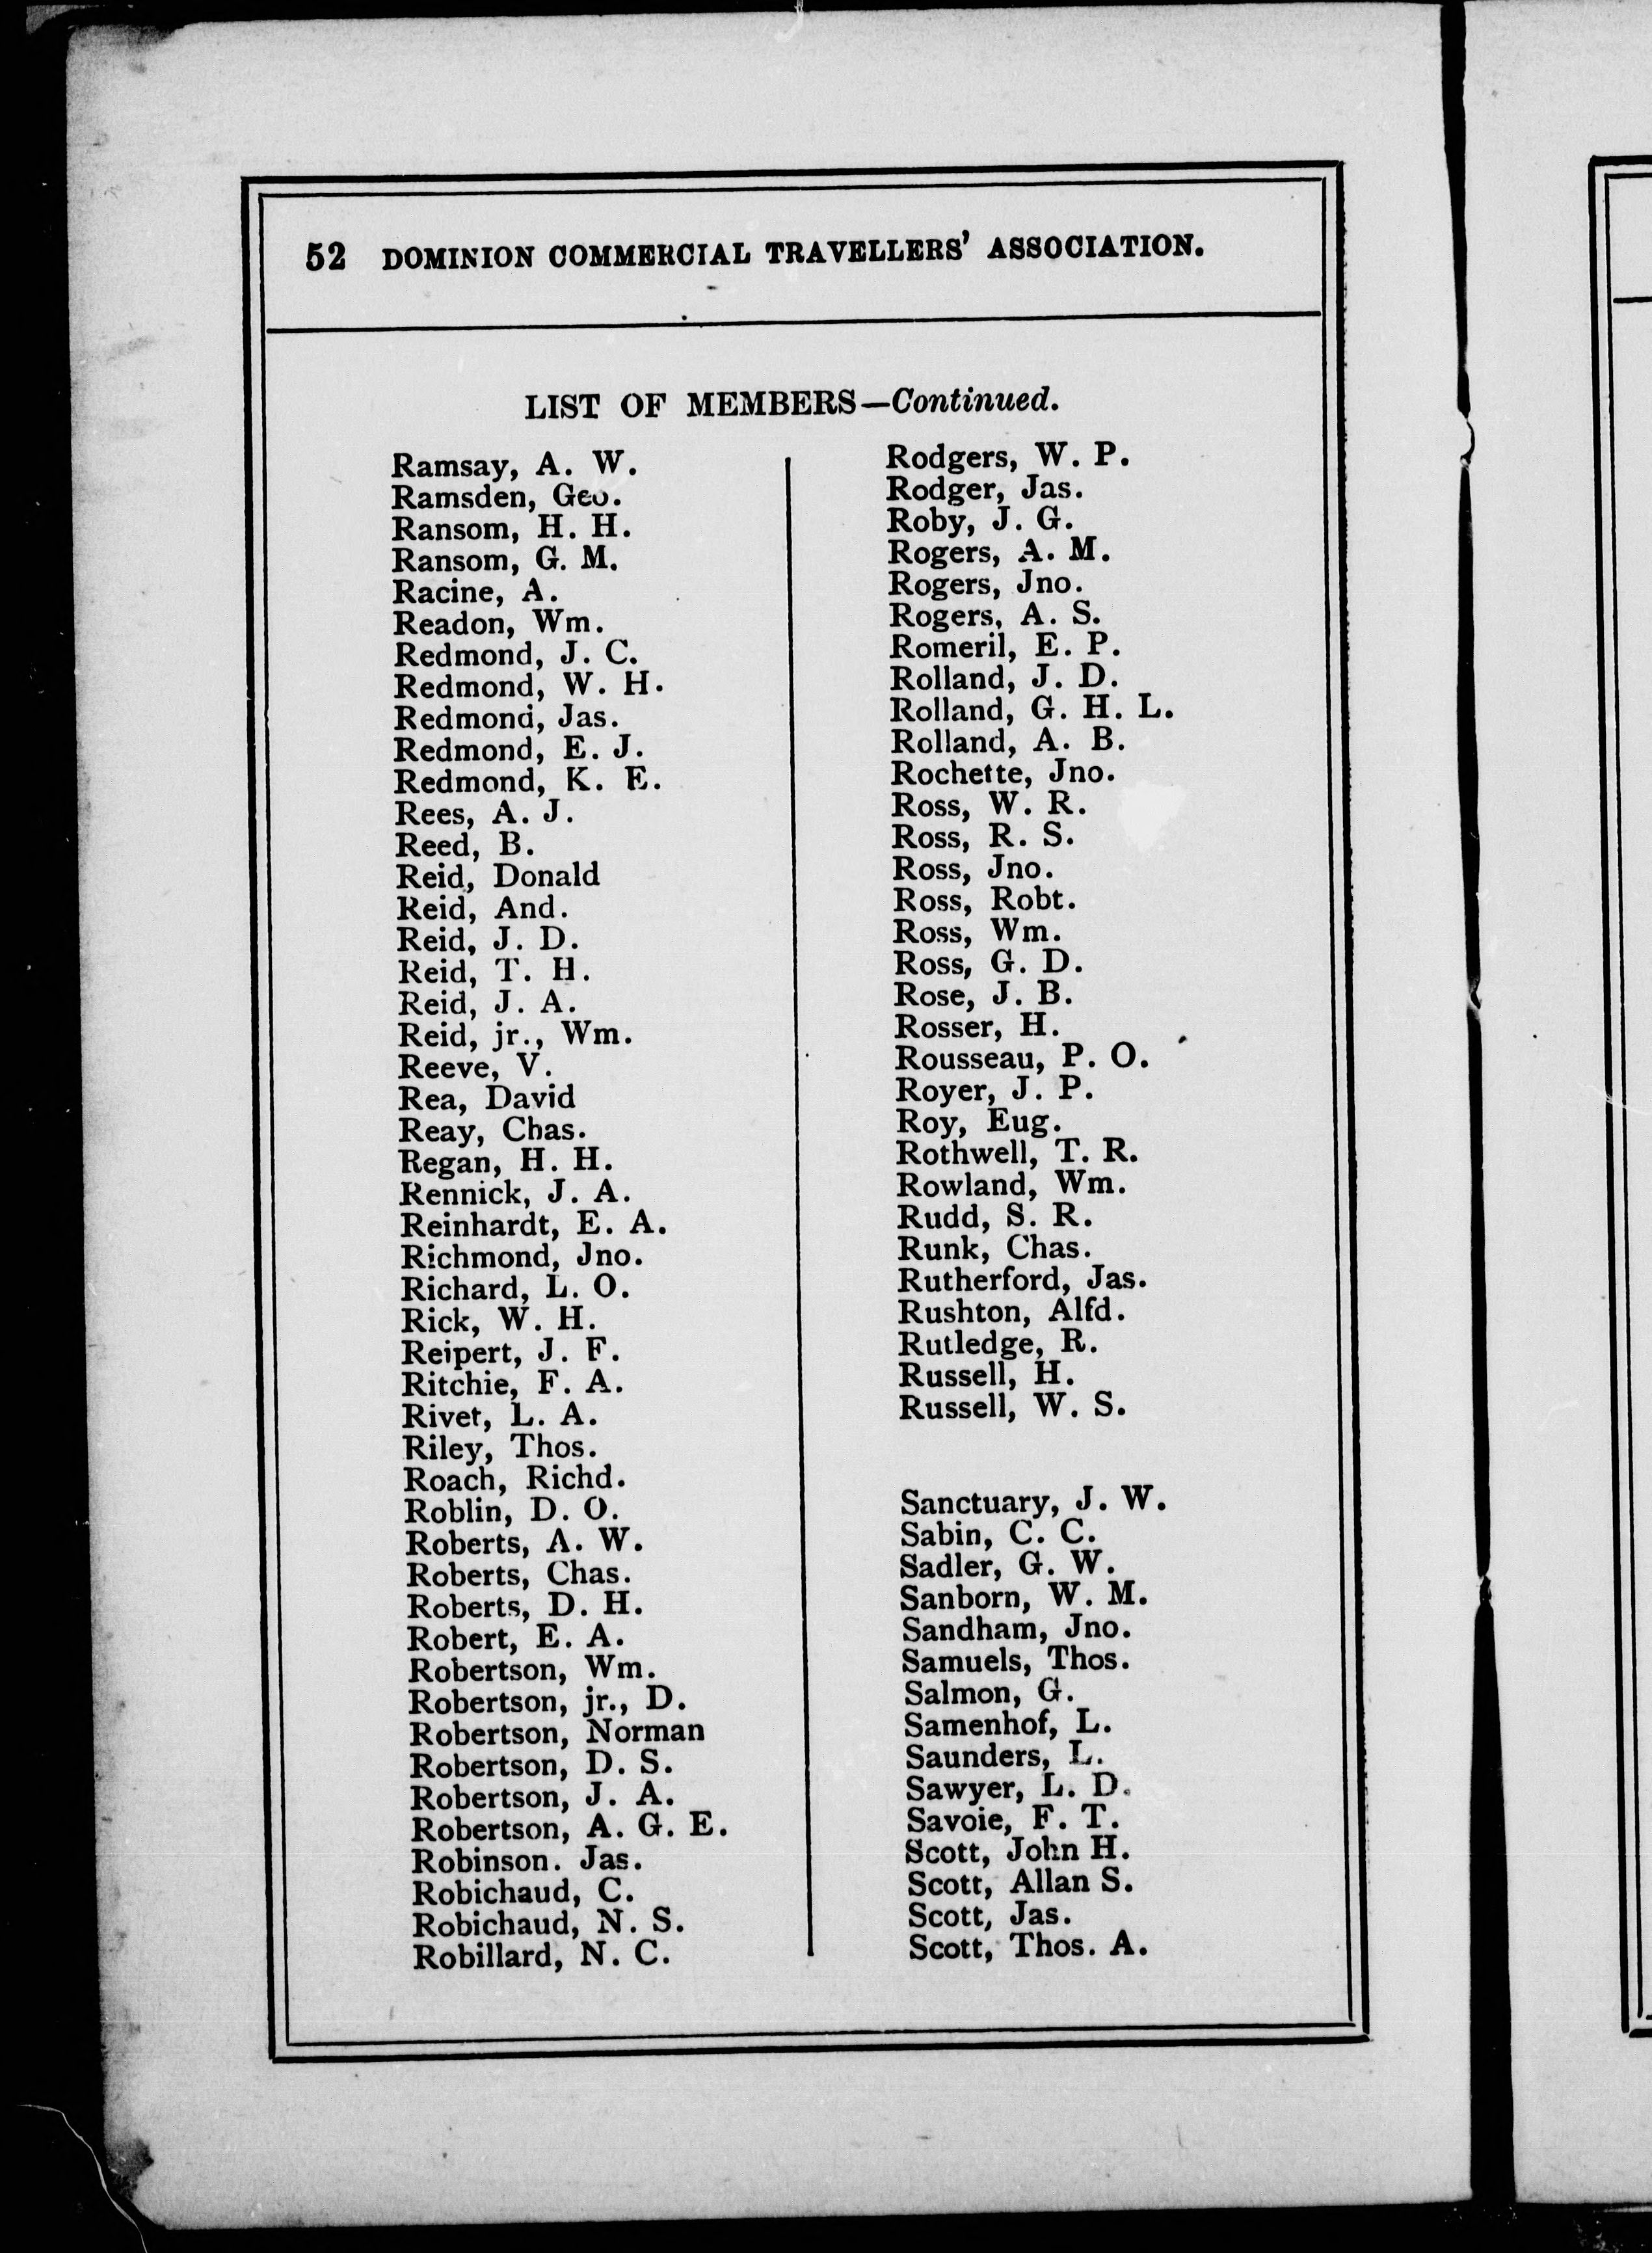 52 DOMINION COMMERCIAL TRAVELLERS' ASSOCIATION.
LIST OF MEMBERS—Continued.
Ramsay, A. W.
Ramsden, Geo.
Ransom, H. H.
Ransom, G. M.
Racine, A.
Readon, Wm.
Redmond, J. C.
Redmond, W. H.
Redmond, Jas.
Redmond, E. J.
Redmond, K. E.
Rees, A. J.
Reed, B.
Reid, Donald
Reid, And.
Reid, J. D.
Reid, T. H.
Reid, J. A.
Reid, jr., Wm.
Reeve, V.
Rea, David
Reay, Chas.
Regan, H. H.
Rennick, J. A.
Reinhardt, E. A.
Richmond, Jno.
Richard, L. O.
Rick, W. H.
Reipert, J. F.
Ritchie, F. A.
Rivet, L. A.
Riley, Thos.
Roach, Richd.
Roblin, D. O.
Roberts, A. W.
Roberts, Chas.
Roberts, D. H.
Robert, E. A.
Robertson, Wm.
Robertson, jr., D.
Robertson, Norman
Robertson, D. S.
Robertson, J. A.
Robertson, A. G. E.
Robinson. Jas.
Robichaud, C.
Robichaud, N. S.
Robillard, N. C.
Rodgers, W. P.
Rodger, Jas.
Roby, J. G.
Rogers, A. M.
Rogers, Jno.
Rogers, A. S.
Romeril, E. P.
Rolland, J. D.
Rolland, G. H. L.
Rolland, A. B.
Rochette, Jno.
Ross, W. R.
Ross, R. S.
Ross, Jno.
Ross, Robt.
Ross, Wm.
Ross, G. D.
Rose, J. B.
Rosser, H.
Rousseau, P. O.
Royer, J. P.
Roy, Eug.
Rothwell, T. R.
Rowland, Wm.
Rudd, S. R.
Runk, Chas.
Rutherford, Jas.
Rushton, Alfd.
Rutledge, R.
Russell, H.
Russell, W. S.
Sanctuary, J. W.
Sabin, C. C.
Sadler, G. W.
Sanborn, W. M.
Sandham, Jno.
Samuels, Thos.
Salmon, G.
Samenhof, L.
Saunders, L.
Sawyer, L. D.
Savoie, F. T.
Scott, John H.
Scott, Allan S.
Scott, Jas.
Scott, Thos. A.